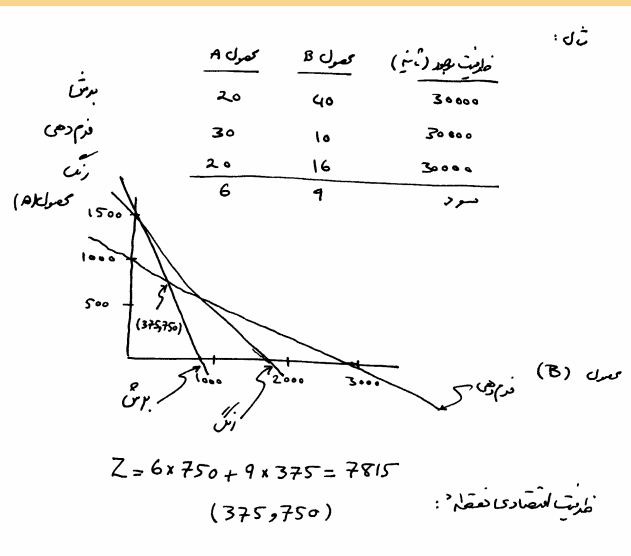 مثال :
محصول A محصول B ظرفیت موجود (ثانیه)
برش 20 40 30000
فرم دهی 30 10 30000
رنگ 20 16 30000
6 9 سود
محصول (A)
1500
1000
500
(375,750)
1000 2000 3000
برش
رنگ
فرم دهی
محصول (B)
Z = 6 x 750 + 9 x 375 = 7815
ظرفیت اقتصادی نقطه :
(375 , 750)